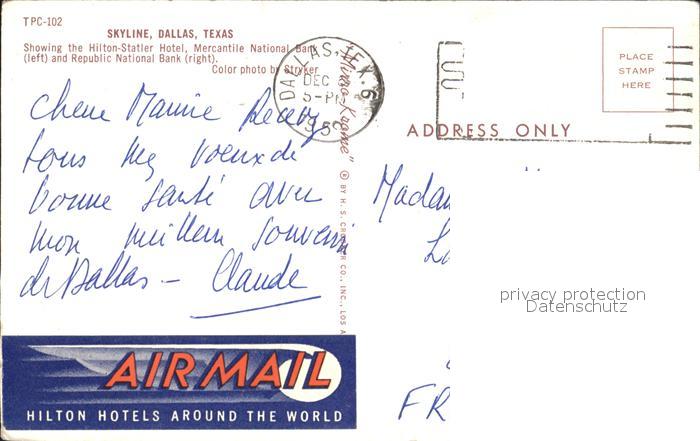 TPC-102
SKYLINE, DALLAS, TEXAS
Showing the Hilton-Statler Hotel, Mercantile National Bank
(left) and Republic National Bank (right).
Color photo by Stryker
DALLAS, TEX. 6
DEC
5-PM
195
"Mirro-Krome"
© BY H. S. CROCKER CO., INC., LOS A
PLACE
STAMP
HERE
ADDRESS ONLY
Chere Mamie Recevez
tous mes voeux de
bonne santé avec
mon meilleur souvenir
de Dallas — Claude
Madam
FR
privacy protection
Datenschutz
AIR MAIL
HILTON HOTELS AROUND THE WORLD